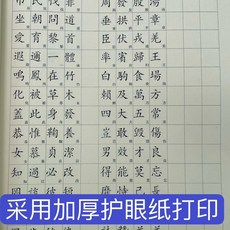 弔民伐罪 周發殷湯
坐朝問道 垂拱平章
愛育黎首 臣伏戎羌
遐邇一體 率賓歸王
鳴鳳在竹 白駒食場
化被草木 賴及萬方
蓋此身髮 四大五常
恭惟鞠養 豈敢毀傷
女慕貞潔 男效才良
知過必改 得能莫忘
采用加厚护眼纸打印